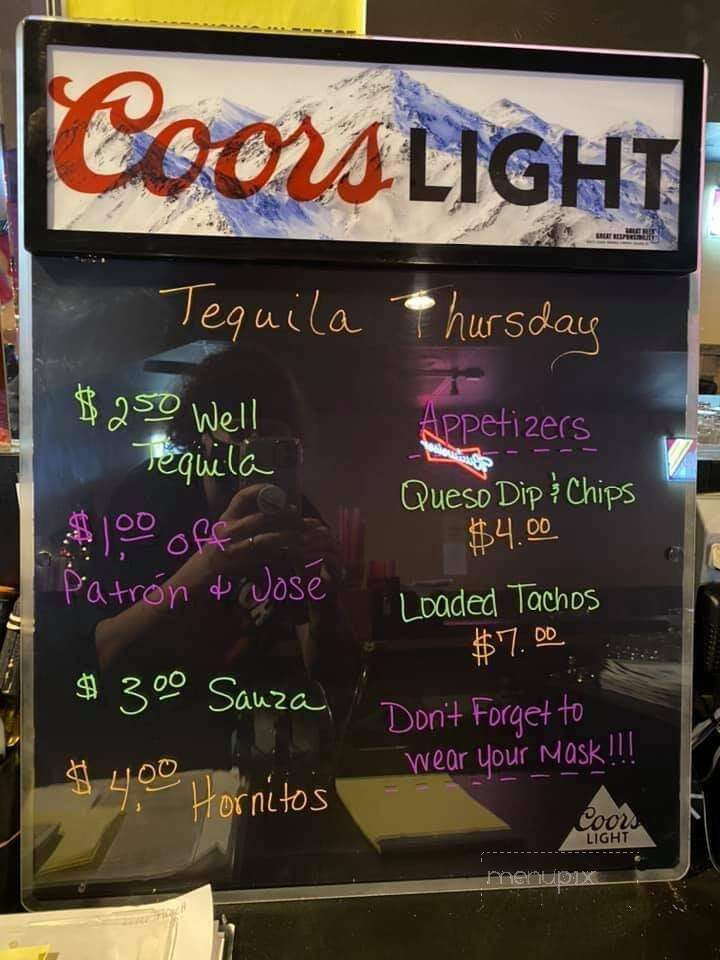 Coors LIGHT
GREAT BEER
GREAT RESPONSIBILITY
Tequila Thursday
$2.50 Well
Tequila
$1.00 off
Patrón & José
$3.00 Sauza
$4.00 Hornitos
Appetizers
Budweiser
Queso Dip & Chips
$4.00
Loaded Tachos
$7.00
Don't Forget to
wear your Mask!!!
Coors
LIGHT
menupix